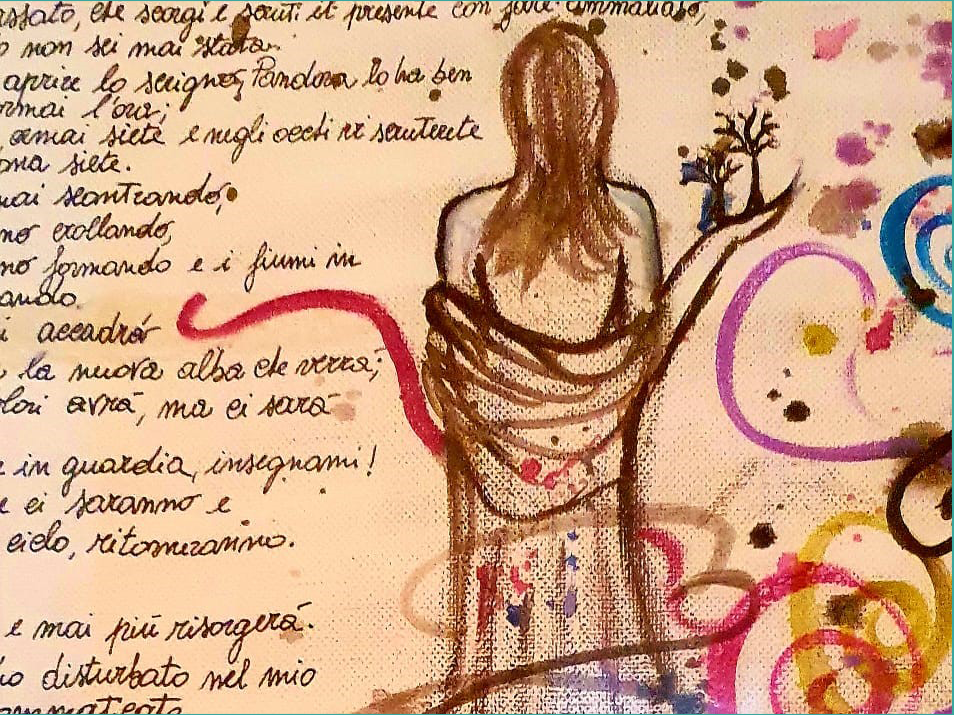 assato, che scorgi e scruti il presente con fare ammaliato,
o non sei mai stata.
aprire lo scrigno, Pandora lo ha ben
ormai l'ora;
ormai siete e negli occhi vi scruterete
siete.
mai scontrando,
no crollando,
no formando e i fiumi in
ando.
i accadrà
la nuova alba che verrà;
lori avrà, ma ci sarà
in guardia, insegnami!
e ci saranno e
cielo, ritorneranno.
e mai più risorgerà.
io disturbato nel mio